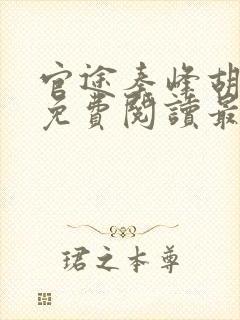 官途秦峰胡
免費閱讀最
珺之本尊